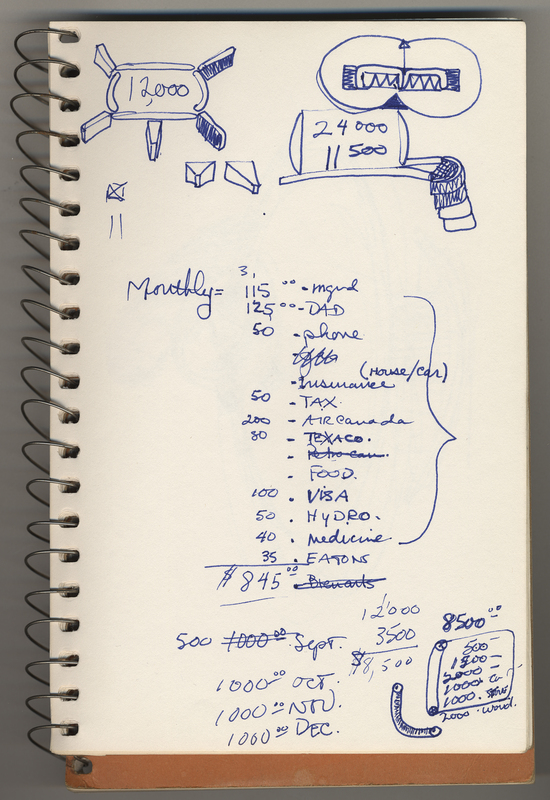 12,000
24000
11500
11
3,
Monthly= 115 00 - mgnd
125 00 - DAD
50 - phone
(House/Car)
- Insurance
50 - TAX
200 - AIR Canada
30 - TEXACO.
- Petro can.
- FOOD.
100 - VISA
50 - HYDRO.
40 - Medicine
35 - EATONS
$845 00
500 1000 00 Sept.
1000 00 OCT.
1000 00 NOV.
1000 00 DEC.
12000
3500
$8,500
8500 00
500 -
2000 -
1000
1000.
2000.